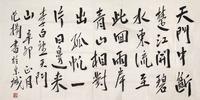 天門中斷
楚江開碧
水東流至
此迴兩岸
青山相對
出孤帆一
片日邊來
李白望天門
山辛卯正月